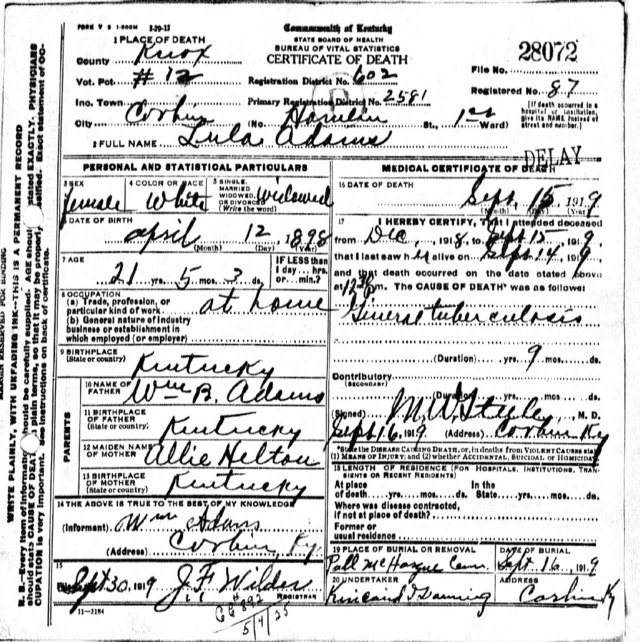 FORM V S 1-500M 1-29-12
Commonwealth of Kentucky
STATE BOARD OF HEALTH
BUREAU OF VITAL STATISTICS
CERTIFICATE OF DEATH
28072
File No.
1 PLACE OF DEATH
County Knox
Vot. Pct. #12
Registration District No. 602
Registered No. 87
Inc. Town
Primary Registration District No. 2581
City Corbin (No. Hamlin St., 1st Ward)
[If death occurred in a hospital or institution, give its NAME instead of street and number.]
2 FULL NAME Lula Adams
DELAY
PERSONAL AND STATISTICAL PARTICULARS
3 SEX female
4 COLOR OR RACE White
5 SINGLE, MARRIED WIDOWED, OR DIVORCED (Write the word) Widowed
6 DATE OF BIRTH
April 12, 1898
(Month) (Day) (Year)
7 AGE
21 yrs. 5 mos. 3 ds.
IF LESS than 1 day... hrs. or... min.?
8 OCCUPATION
(a) Trade, profession, or particular kind of work at home
(b) General nature of industry business or establishment in which employed (or employer)
9 BIRTHPLACE
(State or country) Kentucky
PARENTS
10 NAME OF FATHER Wm B. Adams
11 BIRTHPLACE OF FATHER (State or country) Kentucky
12 MAIDEN NAME OF MOTHER Allie Helton
13 BIRTHPLACE OF MOTHER (State or country) Kentucky
14 THE ABOVE IS TRUE TO THE BEST OF MY KNOWLEDGE
(Informant) Wm Adams
(Address) Corbin, Ky.
15
Sept 30, 1919 J. F. Wilder
REGISTRAR
11-3184
5/4/25
MEDICAL CERTIFICATE OF DEATH
16 DATE OF DEATH
Sept. 15, 1919
(Month) (Day) (Year)
17 I HEREBY CERTIFY, That I attended deceased
from Dec, 1918, to Sept 15, 1919
that I last saw her alive on Sept 14, 1919
and that death occurred on the date stated above
at m. The CAUSE OF DEATH* was as follows:
General tuberculosis
(Duration) yrs. 9 mos. ds.
Contributory
(SECONDARY)
(Duration) yrs. mos. ds.
(Signed) M. W. , M. D.
Sept 16, 1919 (Address) Corbin Ky
*State the DISEASE CAUSING DEATH, or, in deaths from VIOLENT CAUSES state (1) MEANS OF INJURY; and (2) whether ACCIDENTAL, SUICIDAL or HOMICIDAL
18 LENGTH OF RESIDENCE (FOR HOSPITALS, INSTITUTIONS, TRANSIENTS OR RECENT RESIDENTS)
At place of death yrs. mos. ds. In the State yrs. mos. ds.
Where was disease contracted, if not at place of death?
Former or usual residence
19 PLACE OF BURIAL OR REMOVAL
McHargue Cem.
DATE OF BURIAL
Sept. 16, 1919
20 UNDERTAKER
Kincaid
ADDRESS
Corbin Ky
MARGIN RESERVED FOR BINDING
WRITE PLAINLY, WITH UNFADING INK—THIS IS A PERMANENT RECORD
N. B.—Every item of information should be carefully supplied. AGE should be stated EXACTLY. PHYSICIANS should state CAUSE OF DEATH in plain terms, so that it may be properly classified. Exact statement of OCCUPATION is very important. See instructions on back of certificate.